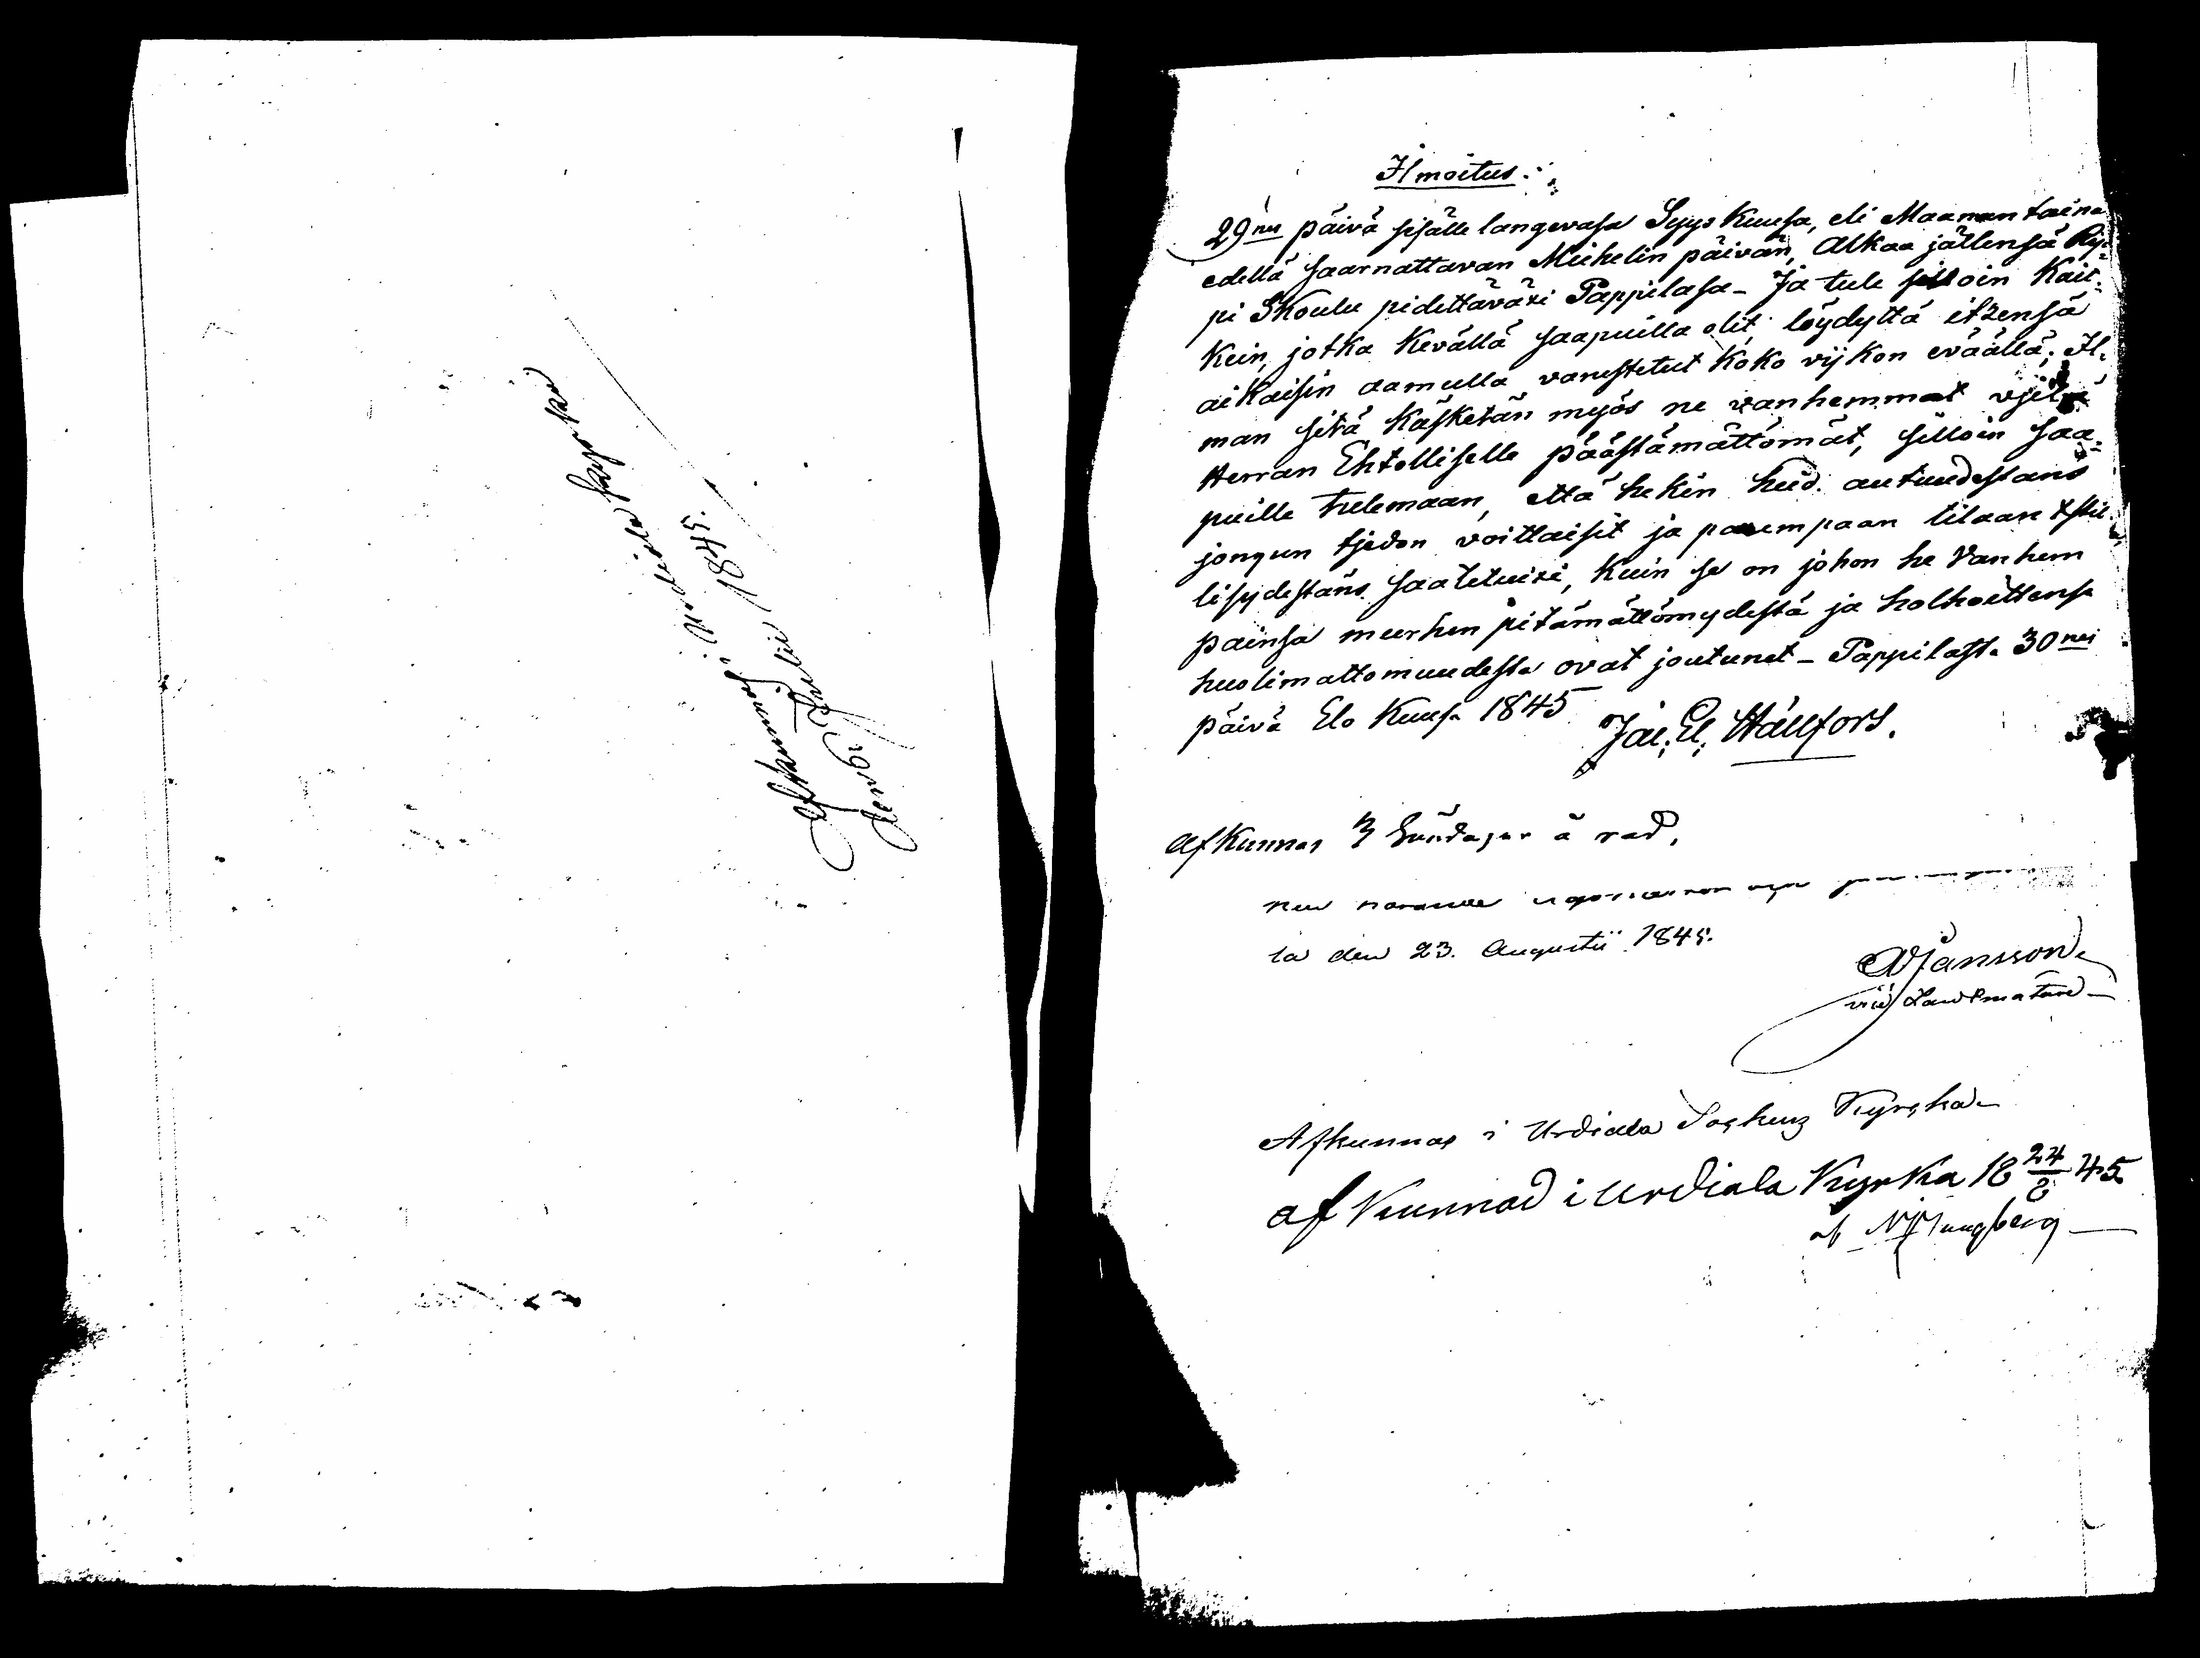 Afkunnas i Urdiala kyrka
den 6 Julii 1845.
Ilmoitus:
29nä päivä sisälle langevasa Syys Kuusa, eli Maanantaina
edellä saarnattavan Mickelin päivän, Alkaa jällensä Rip-
pi Skoulu pidettäväxi Pappilasa - Ja tule silloin Kait-
kein, jotka Kevällä saapuilla olit, löydyttä itzensä
aikaisin aamulla varustetut Koko vijkon eväällä; Il-
man sitä Käsketän myös ne vanhemmat
Herran Ehtolliselle päästämättömät, silloin saa-
puille tulemaan, että hekin autuudestans
jongun tjedon voittaisit ja parempaan tilaan
lisydestäns saatetuixi, Kuin se on johon he Vanhem
painsa murhen pitämättömydestä ja holhoittensa
huolimattomuudesta ovat joutunet - Pappilast. 30nä
päivä Elo Kuusa 1845
Jac. El. Hällfors.
Afkunnas 3 Söndagar å rad.
la den 23. Augustii 1845.
Jansson
Afkunnas i Urdiala Sockens Kyrcka
af Kunnad i Urdiala Kyrka 18 24/8 45
af Ljungberg